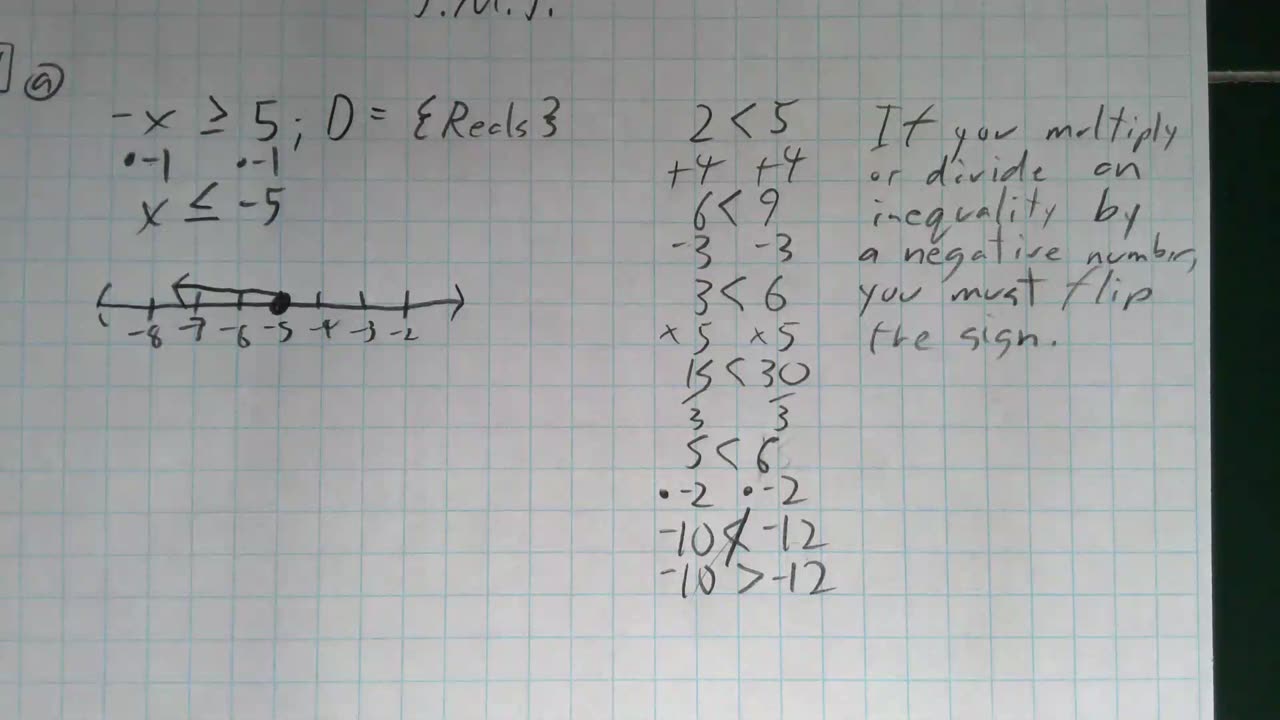 J.M.J.
a
-x ≥ 5; D = {Reals}
•-1 •-1
x ≤ -5
-8 -7 -6 -5 -4 -3 -2
2 < 5
+4 +4
6 < 9
-3 -3
3 < 6
×5 ×5
15 < 30
3 3
5 < 6
•-2 •-2
-10 ≮ -12
-10 > -12
If you multiply
or divide an
inequality by
a negative number,
you must flip
the sign.